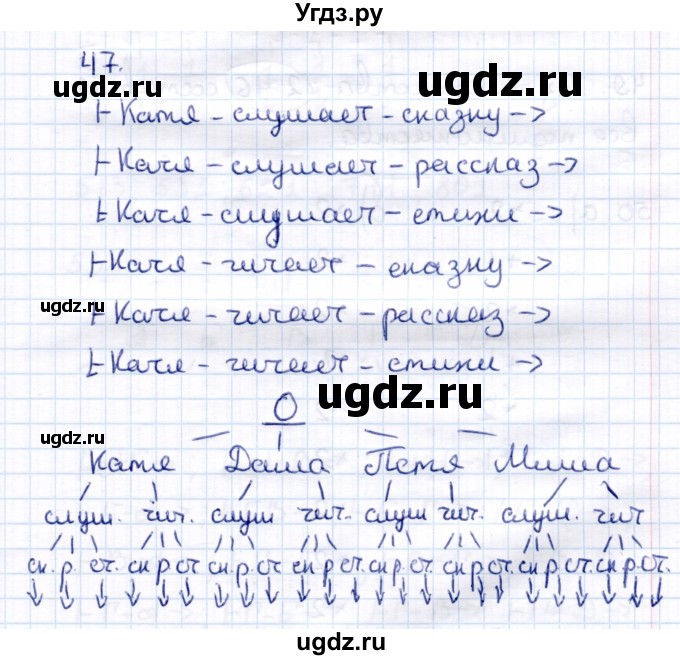 Угдз.ру
47.
ugdz.ru
├ Катя – слушает – сказку –>
├ Катя – слушает – рассказ –>
├ Катя – слушает – стихи –>
├ Катя – читает – сказку –>
ugdz.ru
ugdz.ru
├ Катя – читает – рассказ –>
├ Катя – читает – стихи –>
ugdz.ru
О
ugdz.ru
Катя Даша Петя Миша
слуш. чит. слуш чит. слуш чит. слуш. чит
ск. р. ст. ск р ст ск. р. ст ск р ст. ск р. ст. ск р ст. ск р ст. ск р. ст.
ugdz.ru